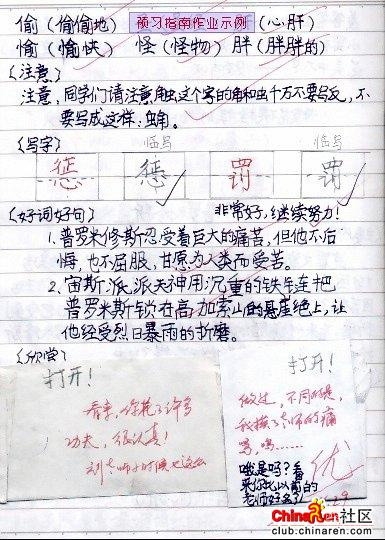 偷（偷偷地） 预习指南作业示例 （心肝）
愉（愉快） 怪（怪物）胖（胖胖的）
〈注意〉
注意，同学们请注意，触这个字的角和虫千万不要写反，不
要写成这样：
〈写字〉 临写 临写
惩 惩 罚 罚
〈好词好句〉 非常好，继续努力！
1. 普罗米修斯忍受着巨大的痛苦，但他不后
悔，也不屈服，甘愿为人类而受苦。
2. 宙斯派派天神用沉重的铁链把
普罗米斯锁在高加索山的悬崖绝上，让
他经受烈日暴雨的折磨。
打开！
看来，你花了许多
功夫，很认真！
刘老师小时候也这么
打开！
做过，不同的是，
我挨了老师的痛
骂，呜……
哦是吗？看
来你比以前的
老师好多了！
优
ChinaRen社区
club.chinaren.com